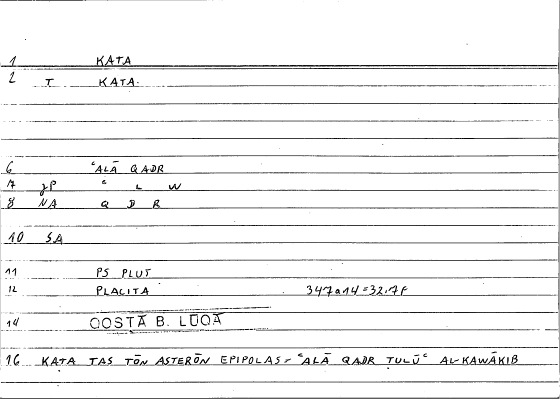 1 KATA
2 T KATA.
6 ʿALĀ QADR
7 JP ʿ L W
8 NA Q D R
10 SA
11 PS PLUT
12 PLACITA 347a14=32.7f
14 QOSṬĀ B. LŪQĀ
16 KATA TAS TŌN ASTERŌN EPIPOLAS - ʿALĀ QADR ṬULŪʿ AL-KAWĀKIB